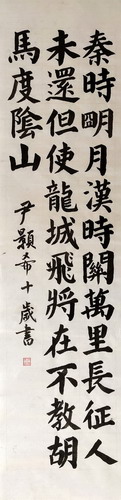 秦時明月漢時關萬里長征人
未還但使龍城飛將在不教胡
馬度陰山
尹顥希十歲書